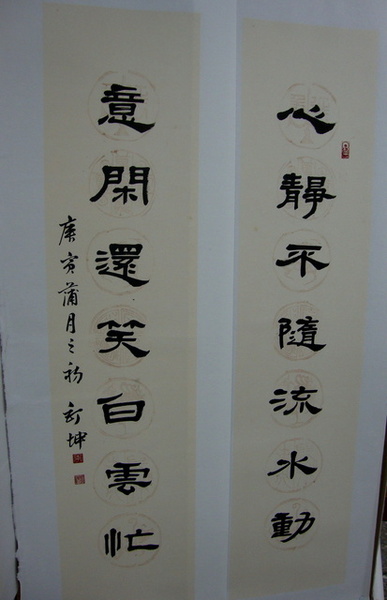 心靜不隨流水動
意閑還笑白雲忙
庚寅蒲月之初 坤